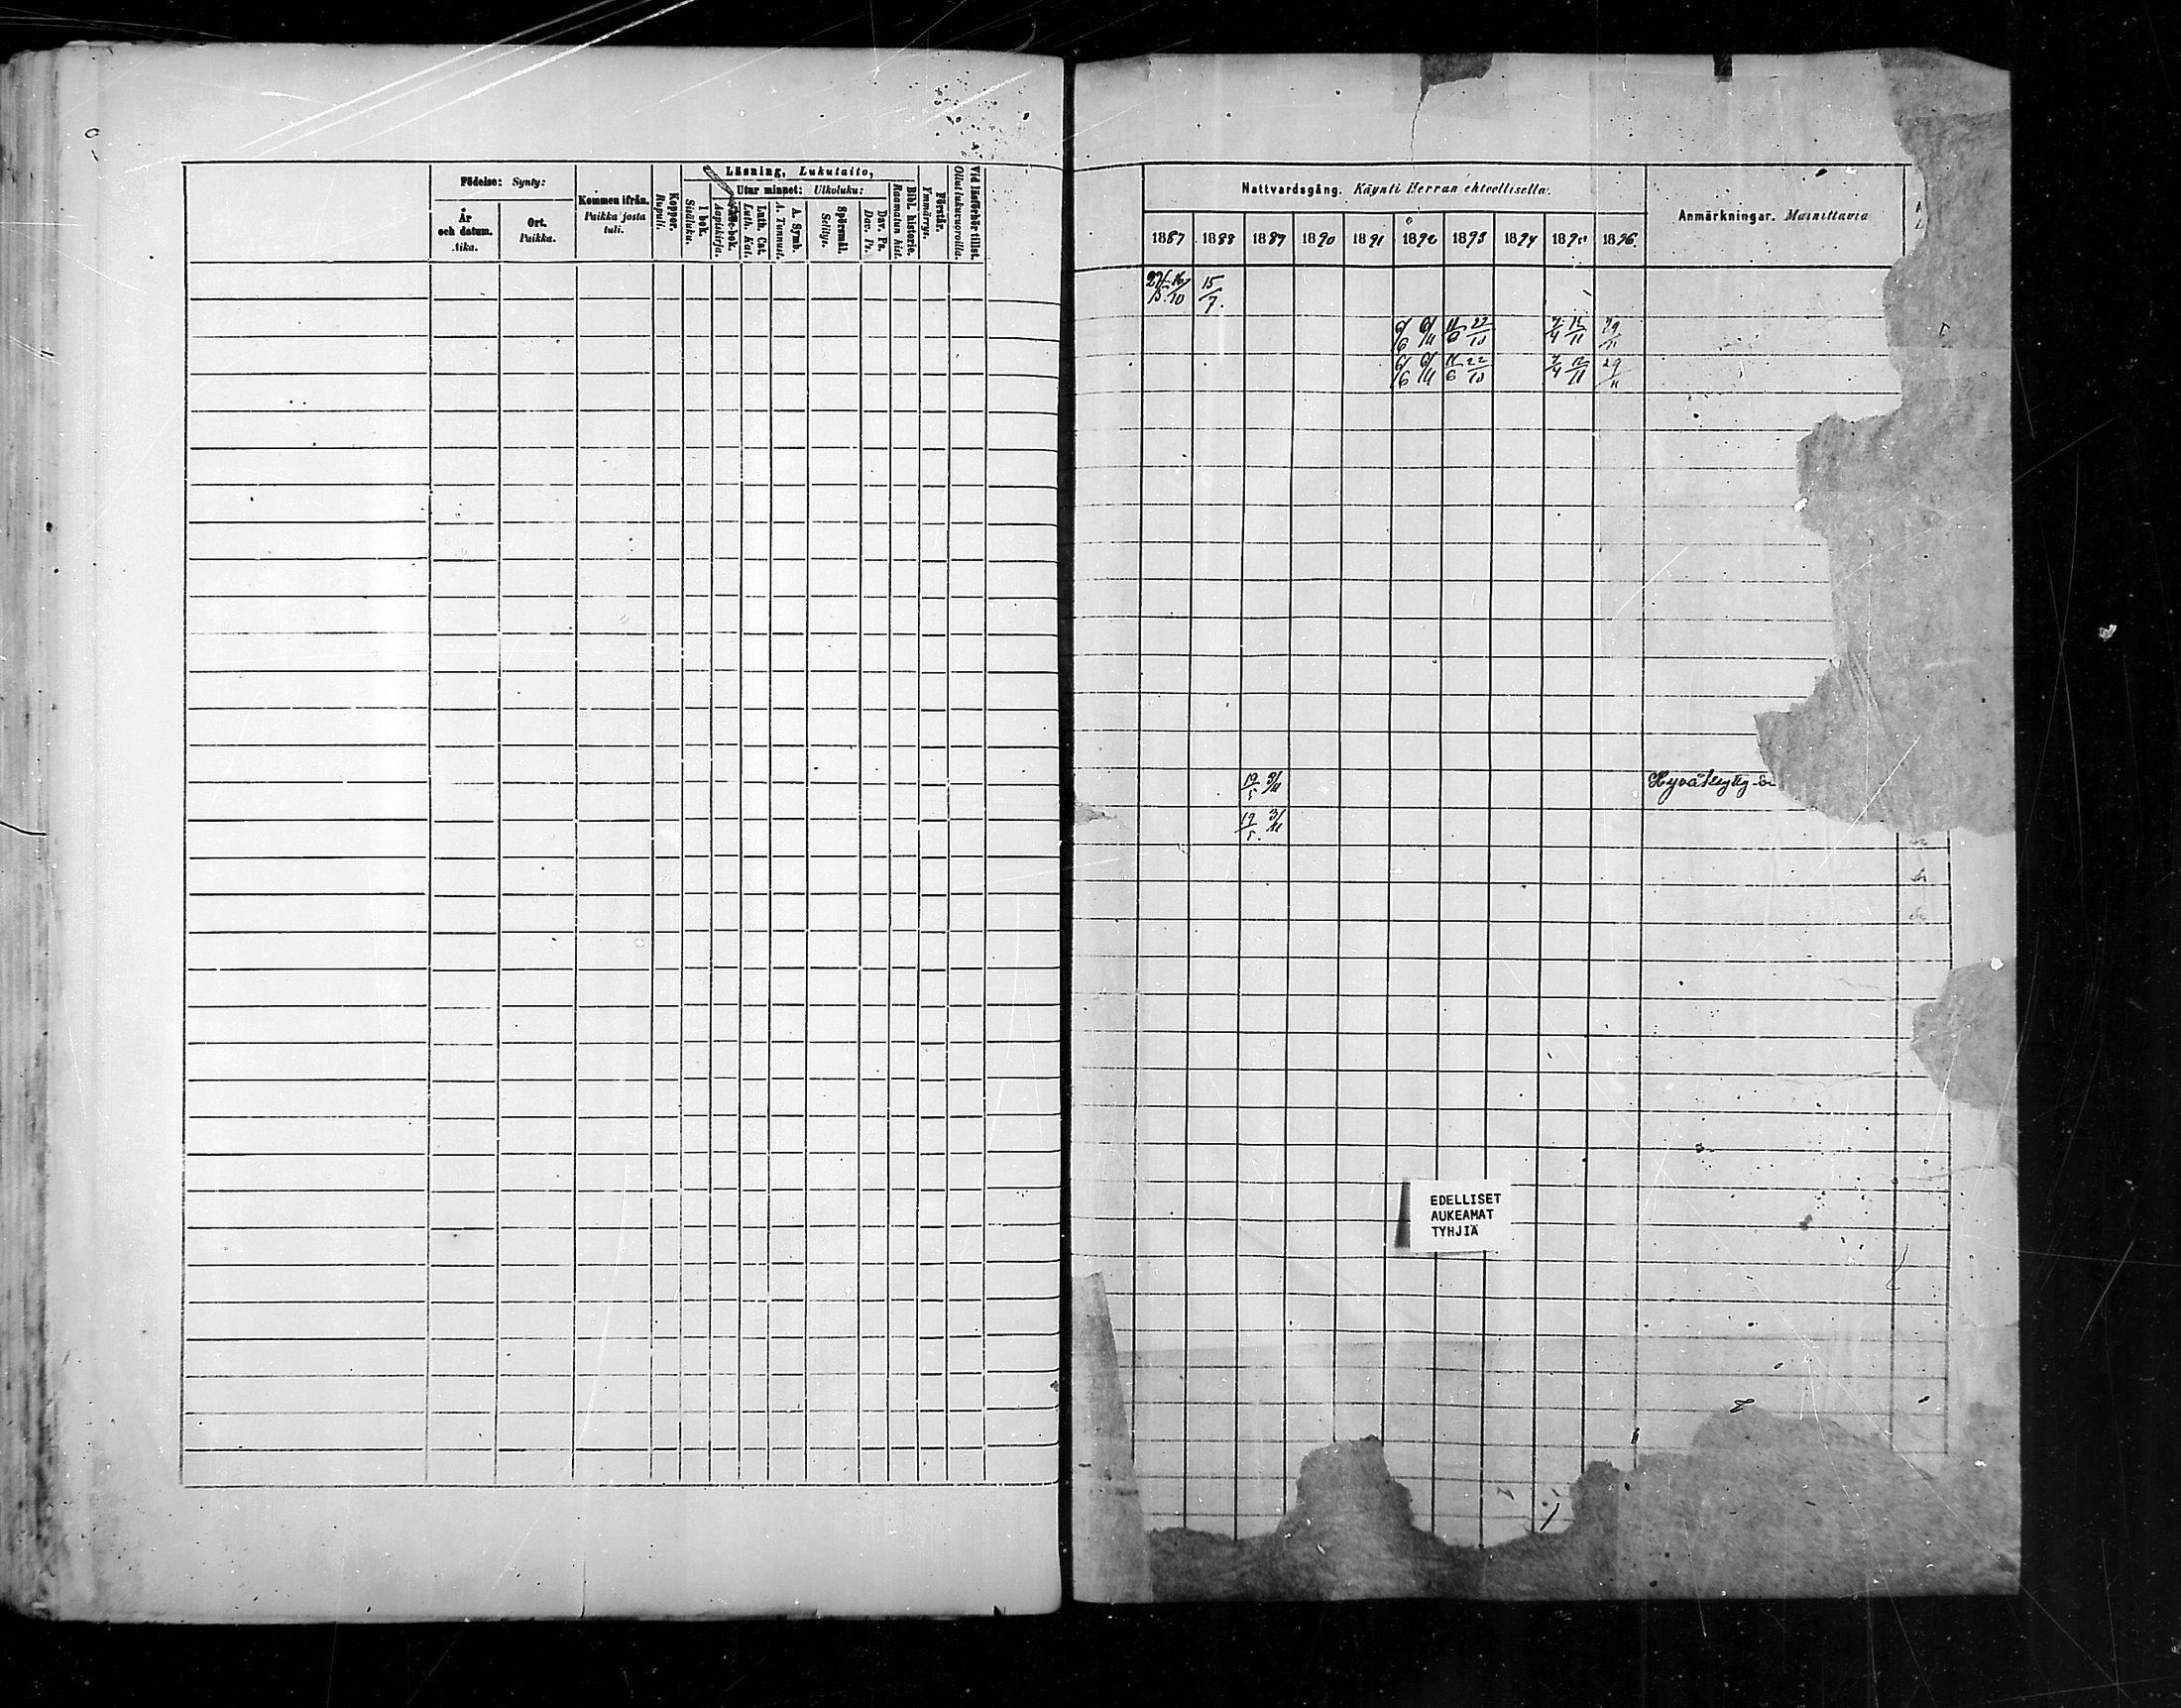 Födelse: Synty:
År och datum. Aika.
Ort. Paikka.
Kommen ifrån. Paikka josta tuli.
Koppor. Rupuli.
Läsning, Lukutaito,
I bok. Sisäluku.
Utur minnet: Ulkoluku:
Abc-bok. Aapiskirja.
Luth. Cat. Luth. Kat.
A. Symb. A. Tunnust.
Spörsmål. Selitys.
Dav. Ps. Dav. Ps.
Bibl. historie. Raamatun hist.
Förstår. Ymmärrys.
Vid läsförhör tillst. Ollut lukuvuoroilla.
Nattvardsgång. Käynti Herran ehtoollisella.
Anmärkningar. Mainittavia
1887 1888 1889 1890 1891 1892 1893 1894 1895 1896
15/7.
6/6 6/11 11/6 22/10 7/4 29/11
6/6 6/11 11/6 22/10 7/4 29/11
19/5 3/11
19/5. 3/11
EDELLISET
AUKEAMAT
TYHJIÄ